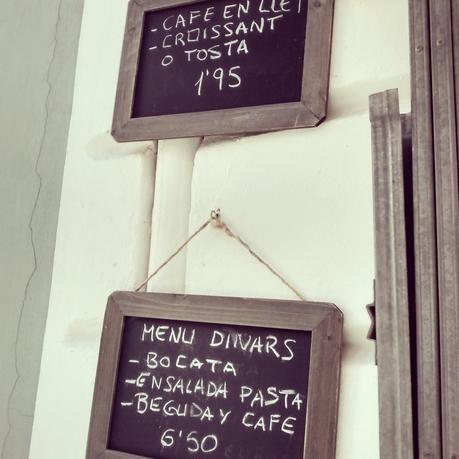 - CAFE EN LLET
- CROISSANT
O TOSTA
1'95
MENU DINARS
- BOCATA
- ENSALADA PASTA
- BEGUDA Y CAFE
6'50